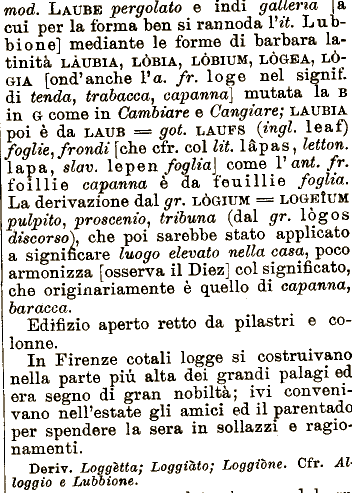 mod. LAUBE pergolato e indi galleria [a
cui per la forma ben si rannoda l'it. Lub-
bione] mediante le forme di barbara la-
tinità LÀUBIA, LÒBIA, LÒBIUM, LÒGEA, LÒ-
GIA [ond'anche l'a. fr. loge nel signif.
di tenda, trabacca, capanna] mutata la B
in G come in Cambiare e Cangiare; LAUBIA
poi è da LAUB = got. LAUFS (ingl. leaf)
foglie, frondi [che cfr. col lit. lâpas, letton.
lapa, slav. lepen foglia] come l'ant. fr.
foillie capanna è da feuillie foglia.
La derivazione dal gr. LÒGIUM = LOGEÎUM
pulpito, proscenio, tribuna (dal gr. lògos
discorso), che poi sarebbe stato applicato
a significare luogo elevato nella casa, poco
armonizza [osserva il Diez] col significato,
che originariamente è quello di capanna,
baracca.
Edifizio aperto retto da pilastri e co-
lonne.
In Firenze cotali logge si costruivano
nella parte più alta dei grandi palagi ed
era segno di gran nobiltà; ivi conveni-
vano nell'estate gli amici ed il parentado
per spendere la sera in sollazzi e ragio-
namenti.
Deriv. Loggètta; Loggiàto; Loggiòne. Cfr. Al-
loggio e Lubbione.